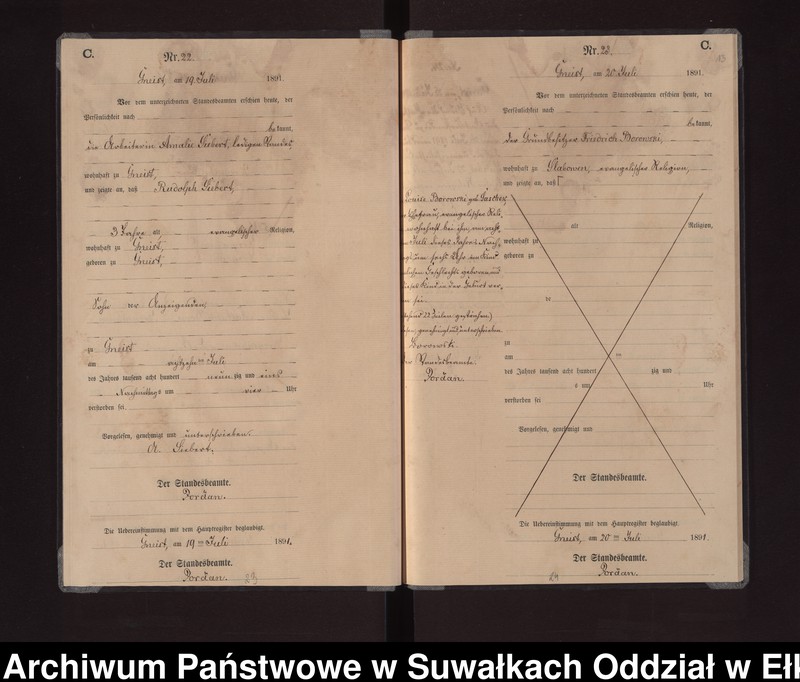 C.
Nr. 22.
Gneist, am 19 Juli 1891.
Vor dem unterzeichneten Standesbeamten erschien heute, der
Persönlichkeit nach
bekannt,
die Arbeiterin Amalie Siebert, ledigen Standes
wohnhaft zu Gneist,
und zeigte an, daß Rudolph Siebert,
3 Jahre alt evangelischer Religion,
wohnhaft zu Gneist,
geboren zu Gneist,
Sohn der Anzeigenden,
zu Gneist
am achtzehnten Juli
des Jahres tausend acht hundert neunzig und eins
Nachmittags um vier Uhr
verstorben sei
Vorgelesen, genehmigt und unterschrieben.
A. Siebert.
Der Standesbeamte.
Pordan.
Die Uebereinstimmung mit dem Hauptregister beglaubigt.
Gneist, am 19ten Juli 1891.
Der Standesbeamte.
Pordan.
23
C.
Nr. 23.
Gneist, am 20 Juli 1891.
Vor dem unterzeichneten Standesbeamten erschien heute, der
Persönlichkeit nach
bekannt,
der Grundbesitzer Friedrich Borowski,
wohnhaft zu evangelischer Religion,
und zeigte an, daß
Louise Borowski geb.
Ehefrau, evangelischer Reli-
wohnhaft bei ihm,
Juli dieses Jahres Nach-
um sechs Uhr ein Kind
lichen Geschlechts geboren und
dieses Kind in der Geburt ver-
sei
22 Zeilen gestrichen.)
genehmigt und unterschrieben
Borowski.
Der Standesbeamte.
Pordan.
alt Religion,
wohnhaft zu
geboren zu
de
zu
am ten
des Jahres tausend acht hundert zig und
s um Uhr
verstorben sei
Vorgelesen, genehmigt und
Der Standesbeamte.
Die Uebereinstimmung mit dem Hauptregister beglaubigt.
Gneist, am 20ten Juli 1891.
Der Standesbeamte.
Pordan.
24
Archiwum Państwowe w Suwałkach Oddział w Ełk